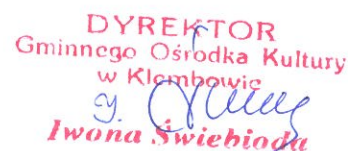 DYREKTOR
Gminnego Ośrodka Kultury
w Klembowie
Iwona Świebioda